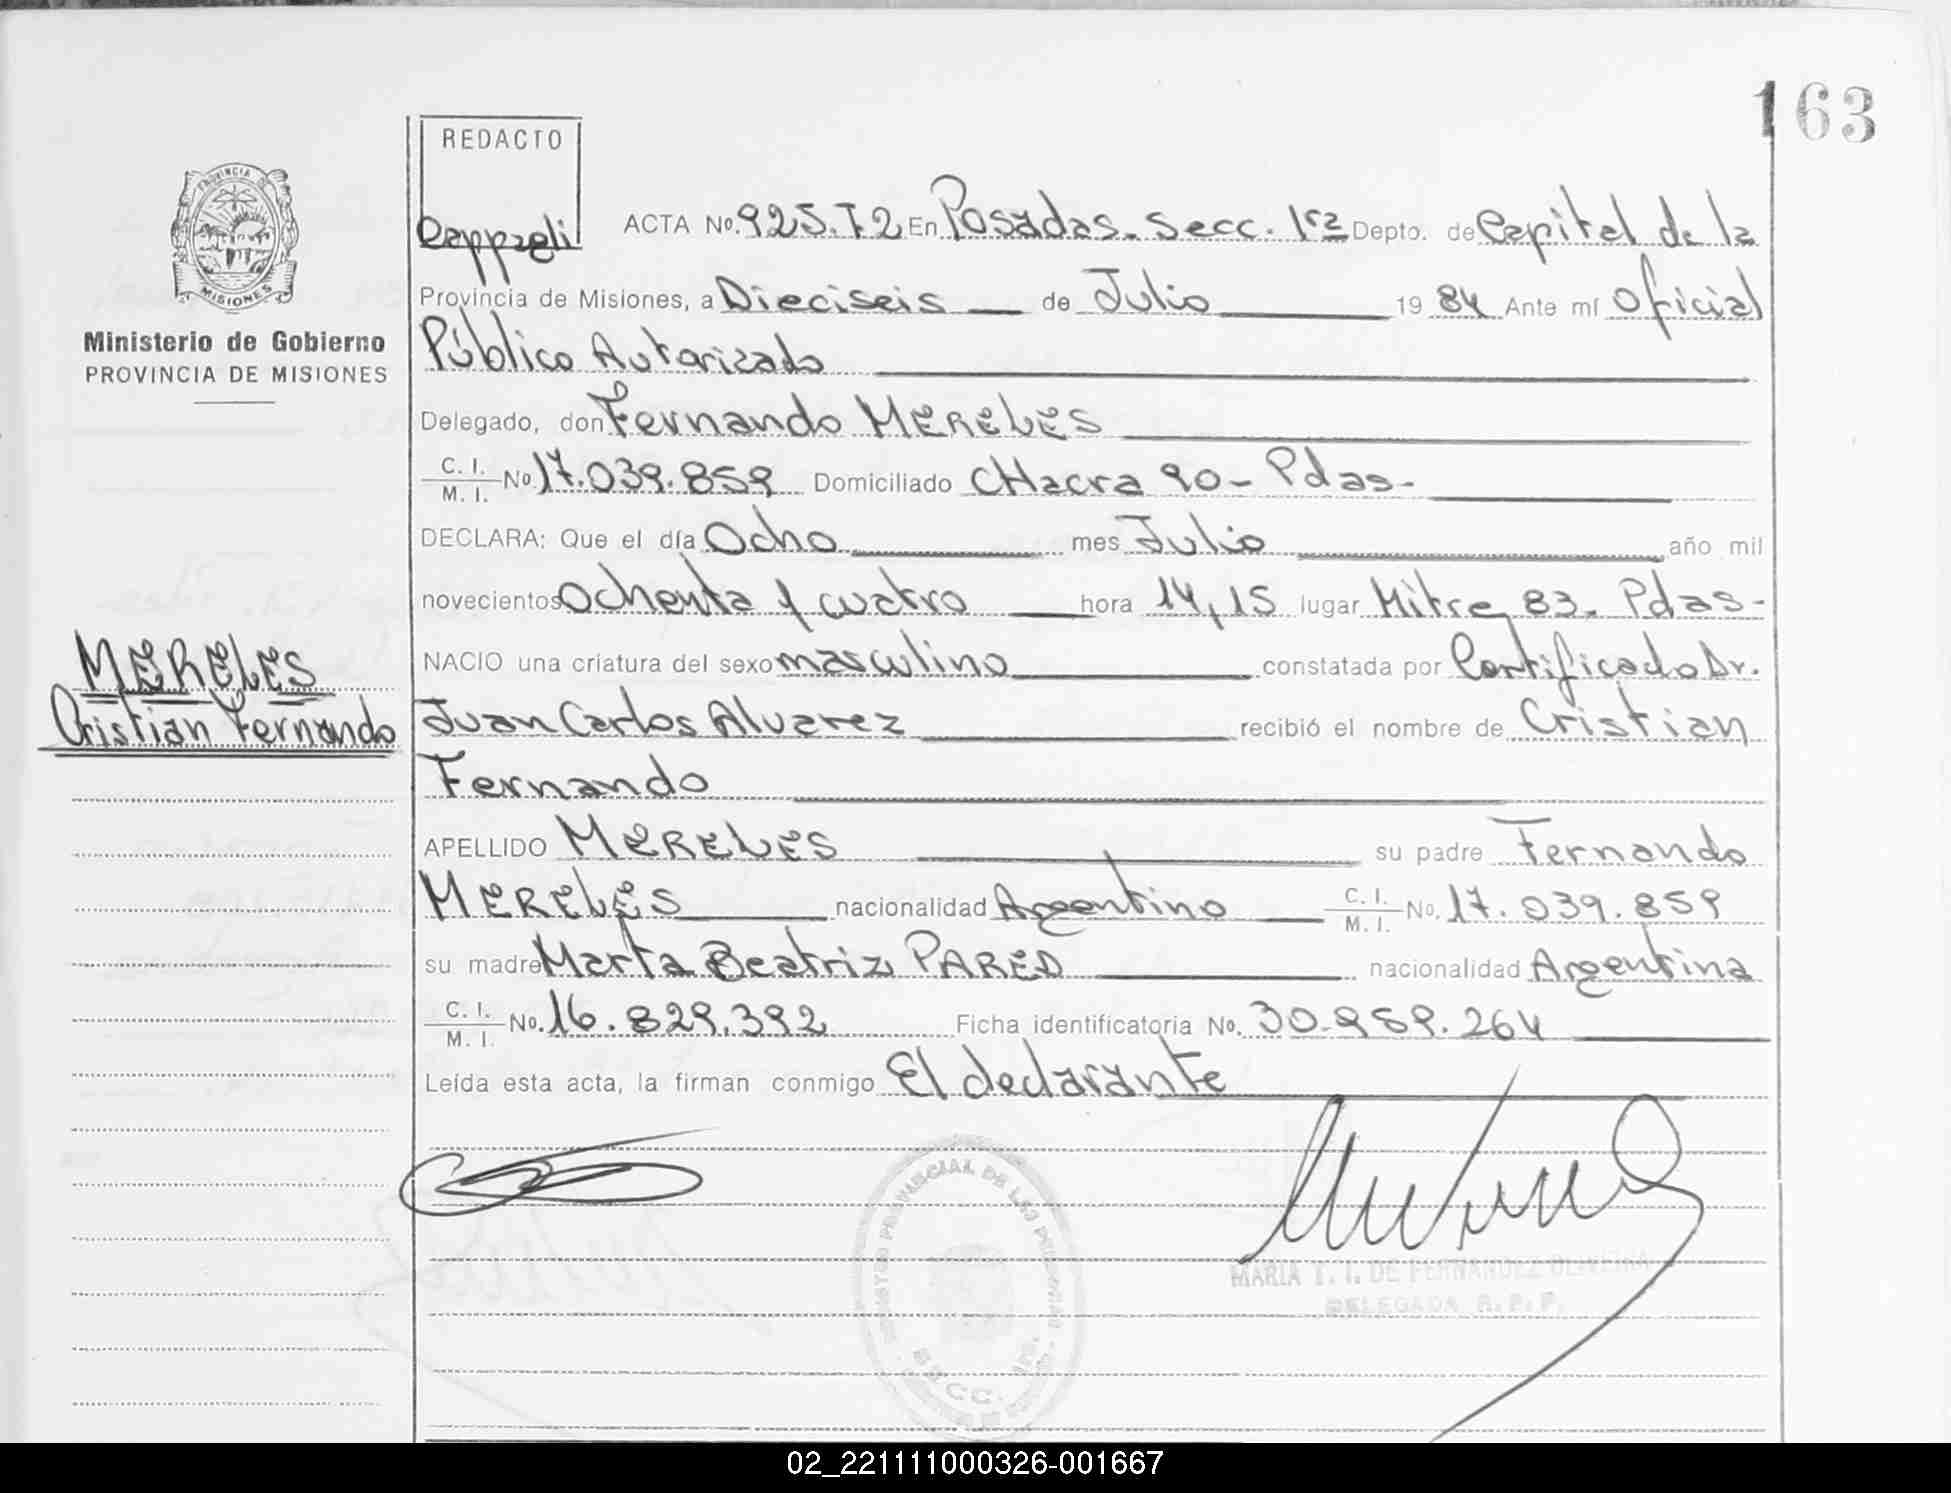 163
REDACTO
PROVINCIA DE
MISIONES
Ministerio de Gobierno
PROVINCIA DE MISIONES
ACTA No. 925. T2 En Posadas. Secc. 1ra Depto. de Capital de la
Provincia de Misiones, a Dieciseis de Julio 1984 Ante mí Oficial
Público Autorizado
Delegado, don Fernando MERELES
C. I. / M. I. No. 17.039.859 Domiciliado CHacra 90- Pdas-
DECLARA: Que el día Ocho mes Julio año mil
novecientos Ochenta y cuatro hora 14,15 lugar Mitre 83. Pdas-
NACIO una criatura del sexo masculino constatada por Certificado Dr.
MERELES
Cristian Fernando
Juan Carlos Alvarez recibió el nombre de Cristian
Fernando
APELLIDO MERELES su padre Fernando
MERELES nacionalidad Argentino C. I. / M. I. No. 17.039.859
su madre Marta Beatriz PARED nacionalidad Argentina
C. I. / M. I. No. 16.829.392 Ficha identificatoria No. 30.959.264
Leída esta acta, la firman conmigo El declarante
MARIA T. I. DE FERNANDEZ OLIVEIRA
DELEGADA R.P.P.
SECC. 1ra.
02_221111000326-001667